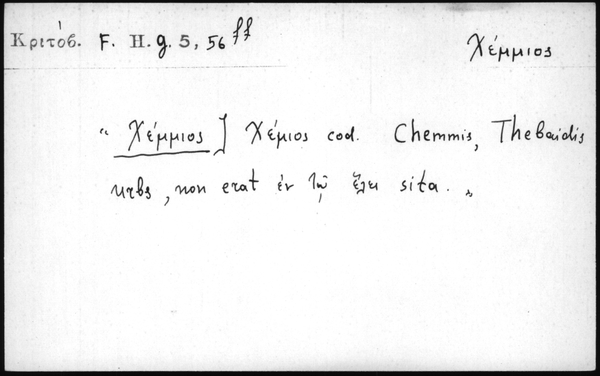 Κριτόβ. F. H. g. 5, 56 ff
Χέμμιος
“ Χέμμιος ] Χέμιος cod. Chemmis, Thebaidis
urbs, non erat ἐν τῷ ἕλει sita. „